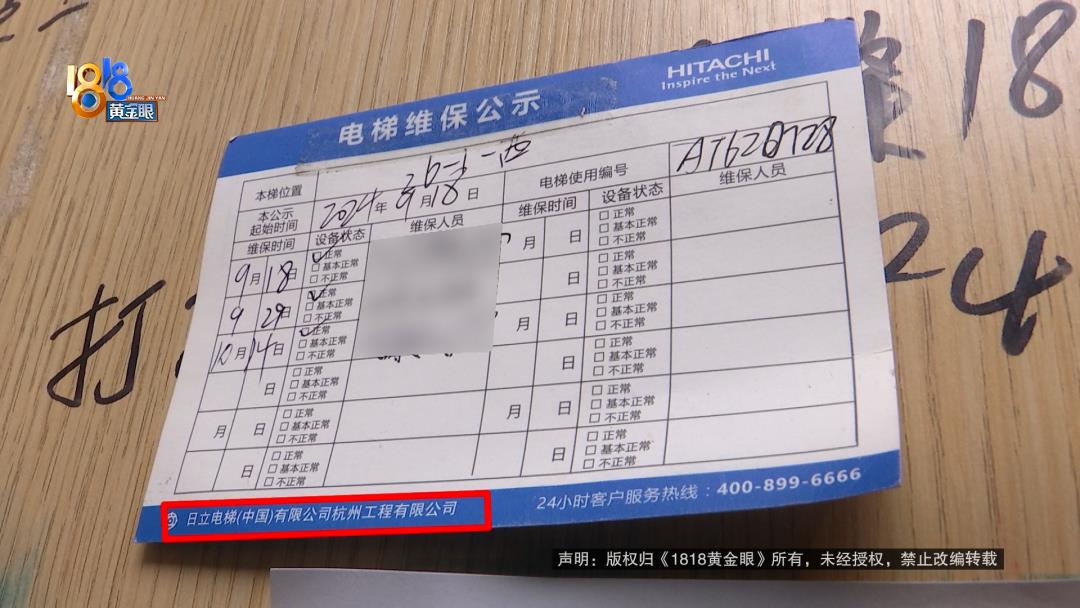 1818
HUANG JIN YAN
黄金眼
18
24
打
HITACHI
Inspire the Next
电梯维保公示
本梯位置
电梯使用编号
本公示起始时间 2024年9月18日
维保时间 设备状态 维保人员 维保时间 设备状态 维保人员
9月18日 ☑正常 □基本正常 □不正常
9 29日 ☑正常 □基本正常 □不正常
10月14日 ☑正常 □基本正常 □不正常
日 □正常 □基本正常 □不正常
月 日 □正常 □基本正常 □不正常
日 □正常 □基本正常 □不正常
月 日 □正常 □基本正常 □不正常
日 □正常 □基本正常 □不正常
月 日 □正常 □基本正常 □不正常
日 □正常 □基本正常 □不正常
月 日 □正常 □基本正常 □不正常
日 □正常 □基本正常 □不正常
日立电梯(中国)有限公司杭州工程有限公司
24小时客户服务热线：400-899-6666
声明：版权归《1818黄金眼》所有，未经授权，禁止改编转载